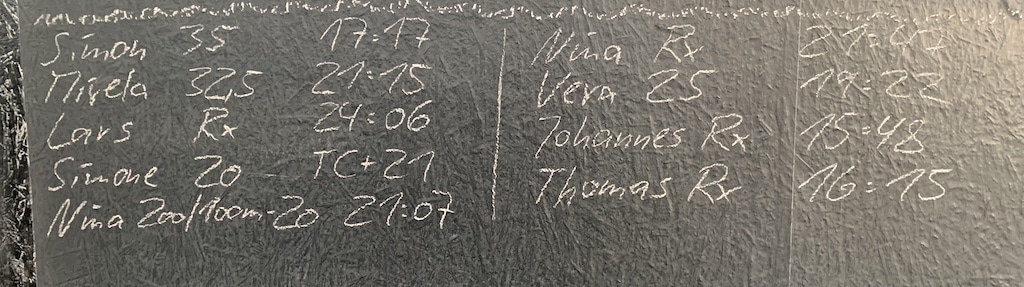 Simon 35 17:17
Mirela 32,5 21:15
Lars Rx 24:06
Simone 20 TC+21
Nina 200/100m-20 21:07
Nina Rx
Vera 25 19:22
Johannes Rx 15:48
Thomas Rx 16:15